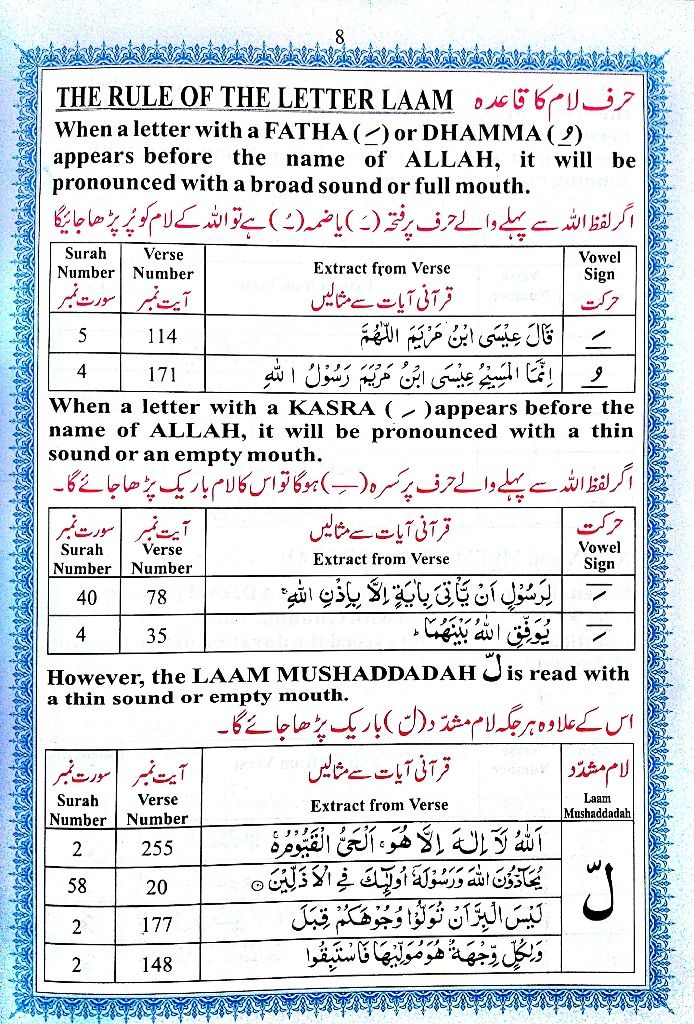 8
THE RULE OF THE LETTER LAAM حرف لام کا قاعدہ
When a letter with a FATHA ( ـَ ) or DHAMMA ( ـُ )
appears before the name of ALLAH, it will be
pronounced with a broad sound or full mouth.
اگر لفظ اللہ سے پہلے والے حرف پر فتحہ ( ـَ ) یا ضمہ ( ـُ ) ہے تو اللہ کے لام کو پُر پڑھا جائیگا
Surah Number سورت نمبر | Verse Number آیت نمبر | Extract from Verse قرآنی آیات سے مثالیں | Vowel Sign حرکت
5 | 114 | قَالَ عِیْسَی ابْنُ مَرْیَمَ اللّٰهُمَّ | ـَ
4 | 171 | اِنَّمَا الْمَسِیْحُ عِیْسَی ابْنُ مَرْیَمَ رَسُوْلُ اللّٰهِ | ـُ
When a letter with a KASRA ( ـِ ) appears before the
name of ALLAH, it will be pronounced with a thin
sound or an empty mouth.
اگر لفظ اللہ سے پہلے والے حرف پر کسرہ ( ـِ ) ہوگا تو اس کا لام باریک پڑھا جائے گا۔
سورت نمبر Surah Number | آیت نمبر Verse Number | قرآنی آیات سے مثالیں Extract from Verse | حرکت Vowel Sign
40 | 78 | لِرَسُوْلٍ اَنْ یَّاْتِیَ بِاٰیَةٍ اِلَّا بِاِذْنِ اللّٰهِ ۚ
4 | 35 | یُوَفِّقِ اللّٰهُ بَیْنَهُمَا ؕ | ـِ
However, the LAAM MUSHADDADAH لّ is read with
a thin sound or empty mouth.
اس کے علاوہ ہر جگہ لام مشدّد (لّ) باریک پڑھا جائے گا۔
سورت نمبر Surah Number | آیت نمبر Verse Number | قرآنی آیات سے مثالیں Extract from Verse | لام مشدّد Laam Mushaddadah
2 | 255 | اَللّٰهُ لَاۤ اِلٰهَ اِلَّا هُوَ ۚ اَلْحَیُّ الْقَیُّوْمُ ۚ
58 | 20 | یُحَآدُّوْنَ اللّٰهَ وَرَسُوْلَهٗۤ اُولٰٓىِٕكَ فِی الْاَذَلِّیْنَ
2 | 177 | لَیْسَ الْبِرَّ اَنْ تُوَلُّوْا وُجُوْهَكُمْ قِبَلَ | لّ
2 | 148 | وَلِكُلٍّ وِّجْهَةٌ هُوَ مُوَلِّیْهَا فَاسْتَبِقُوا